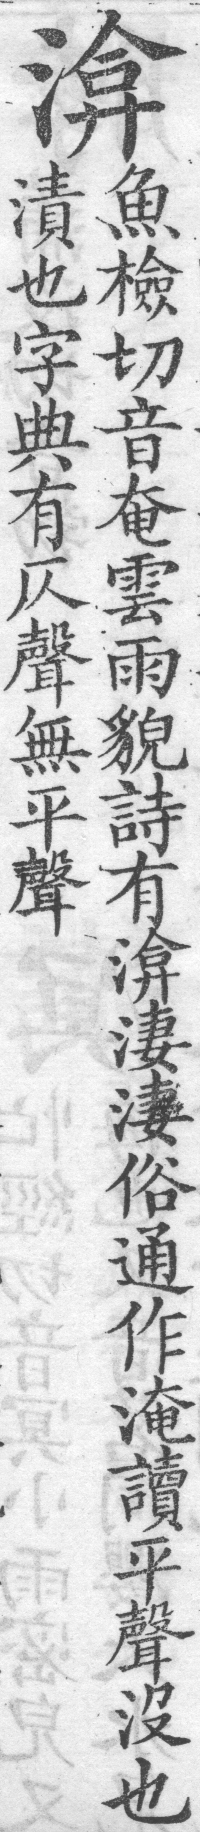 渰
魚檢切音奄雲雨貌詩有渰淒淒俗通作淹讀平聲沒也
漬也字典有仄聲無平聲